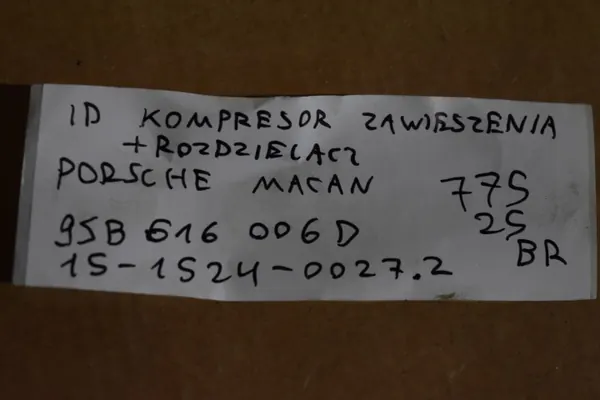 ID KOMPRESOR ZAWIESZENIA
+ROZDZIELACZ
PORSCHE MACAN 775
25
95B 616 006D BR
15-1524-0027.2